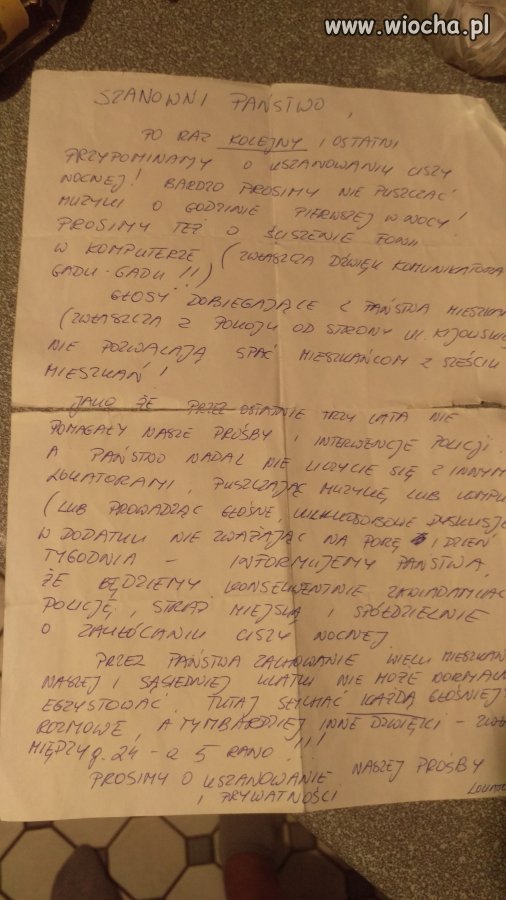 www.wiocha.pl
SZANOWNI PAŃSTWO,
PO RAZ KOLEJNY I OSTATNI
PRZYPOMINAMY O USZANOWANIU CISZY
NOCNEJ! BARDZO PROSIMY NIE PUSZCZAĆ
MUZYKI O GODZINIE PIERWSZEJ W NOCY!
PROSIMY TEŻ O ŚCISZENIE FONII
W KOMPUTERZE (ZWŁASZCZA DŹWIĘK KOMUNIKATORA
GADU-GADU!!)
GŁOSY DOBIEGAJĄCE Z PAŃSTWA MIESZKAN
(ZWŁASZCZA Z POKOJU OD STRONY UL. KIJOWSKIE
NIE POZWALAJĄ SPAĆ MIESZKAŃCOM Z SZEŚCIU
MIESZKAŃ!
JAKO ŻE PRZEZ OSTATNIE TRZY LATA NIE
POMAGAŁY NASZE PROŚBY I INTERWENCJE POLICJI.
A PAŃSTWO NADAL NIE LICZYCIE SIĘ Z INNYM
LOKATORAMI, PUSZCZAJĄC MUZYKĘ, LUB KOMPU
(LUB PROWADZĄC GŁOŚNE, WIELOOSOBOWE DYSKUSJE
W DODATKU NIE ZWAŻAJĄC NA PORĘ I DZIEŃ
TYGODNIA - INFORMUJEMY PAŃSTWA,
ŻE BĘDZIEMY KONSEKWENTNIE ZAWIADAMIAĆ
POLICJĘ, STRAŻ MIEJSKĄ I SPÓŁDZIELNIE
O ZAKŁÓCANIU CISZY NOCNEJ.
PRZEZ PAŃSTWA ZACHOWANIE WIELU MIESZKAŃ
NASZEJ I SĄSIEDNIEJ KLATKI NIE MOŻE NORMALN
EGZYSTOWAĆ. TUTAJ SŁYCHAĆ KAŻDĄ GŁOŚNIEJ
ROZMOWĘ, A TYMBARDZIEJ INNE DŹWIĘKI -
MIĘDZY g. 24 - a 5 RANO!!!
PROSIMY O USZANOWANIE NASZEJ PROŚBY
I PRYWATNOŚCI